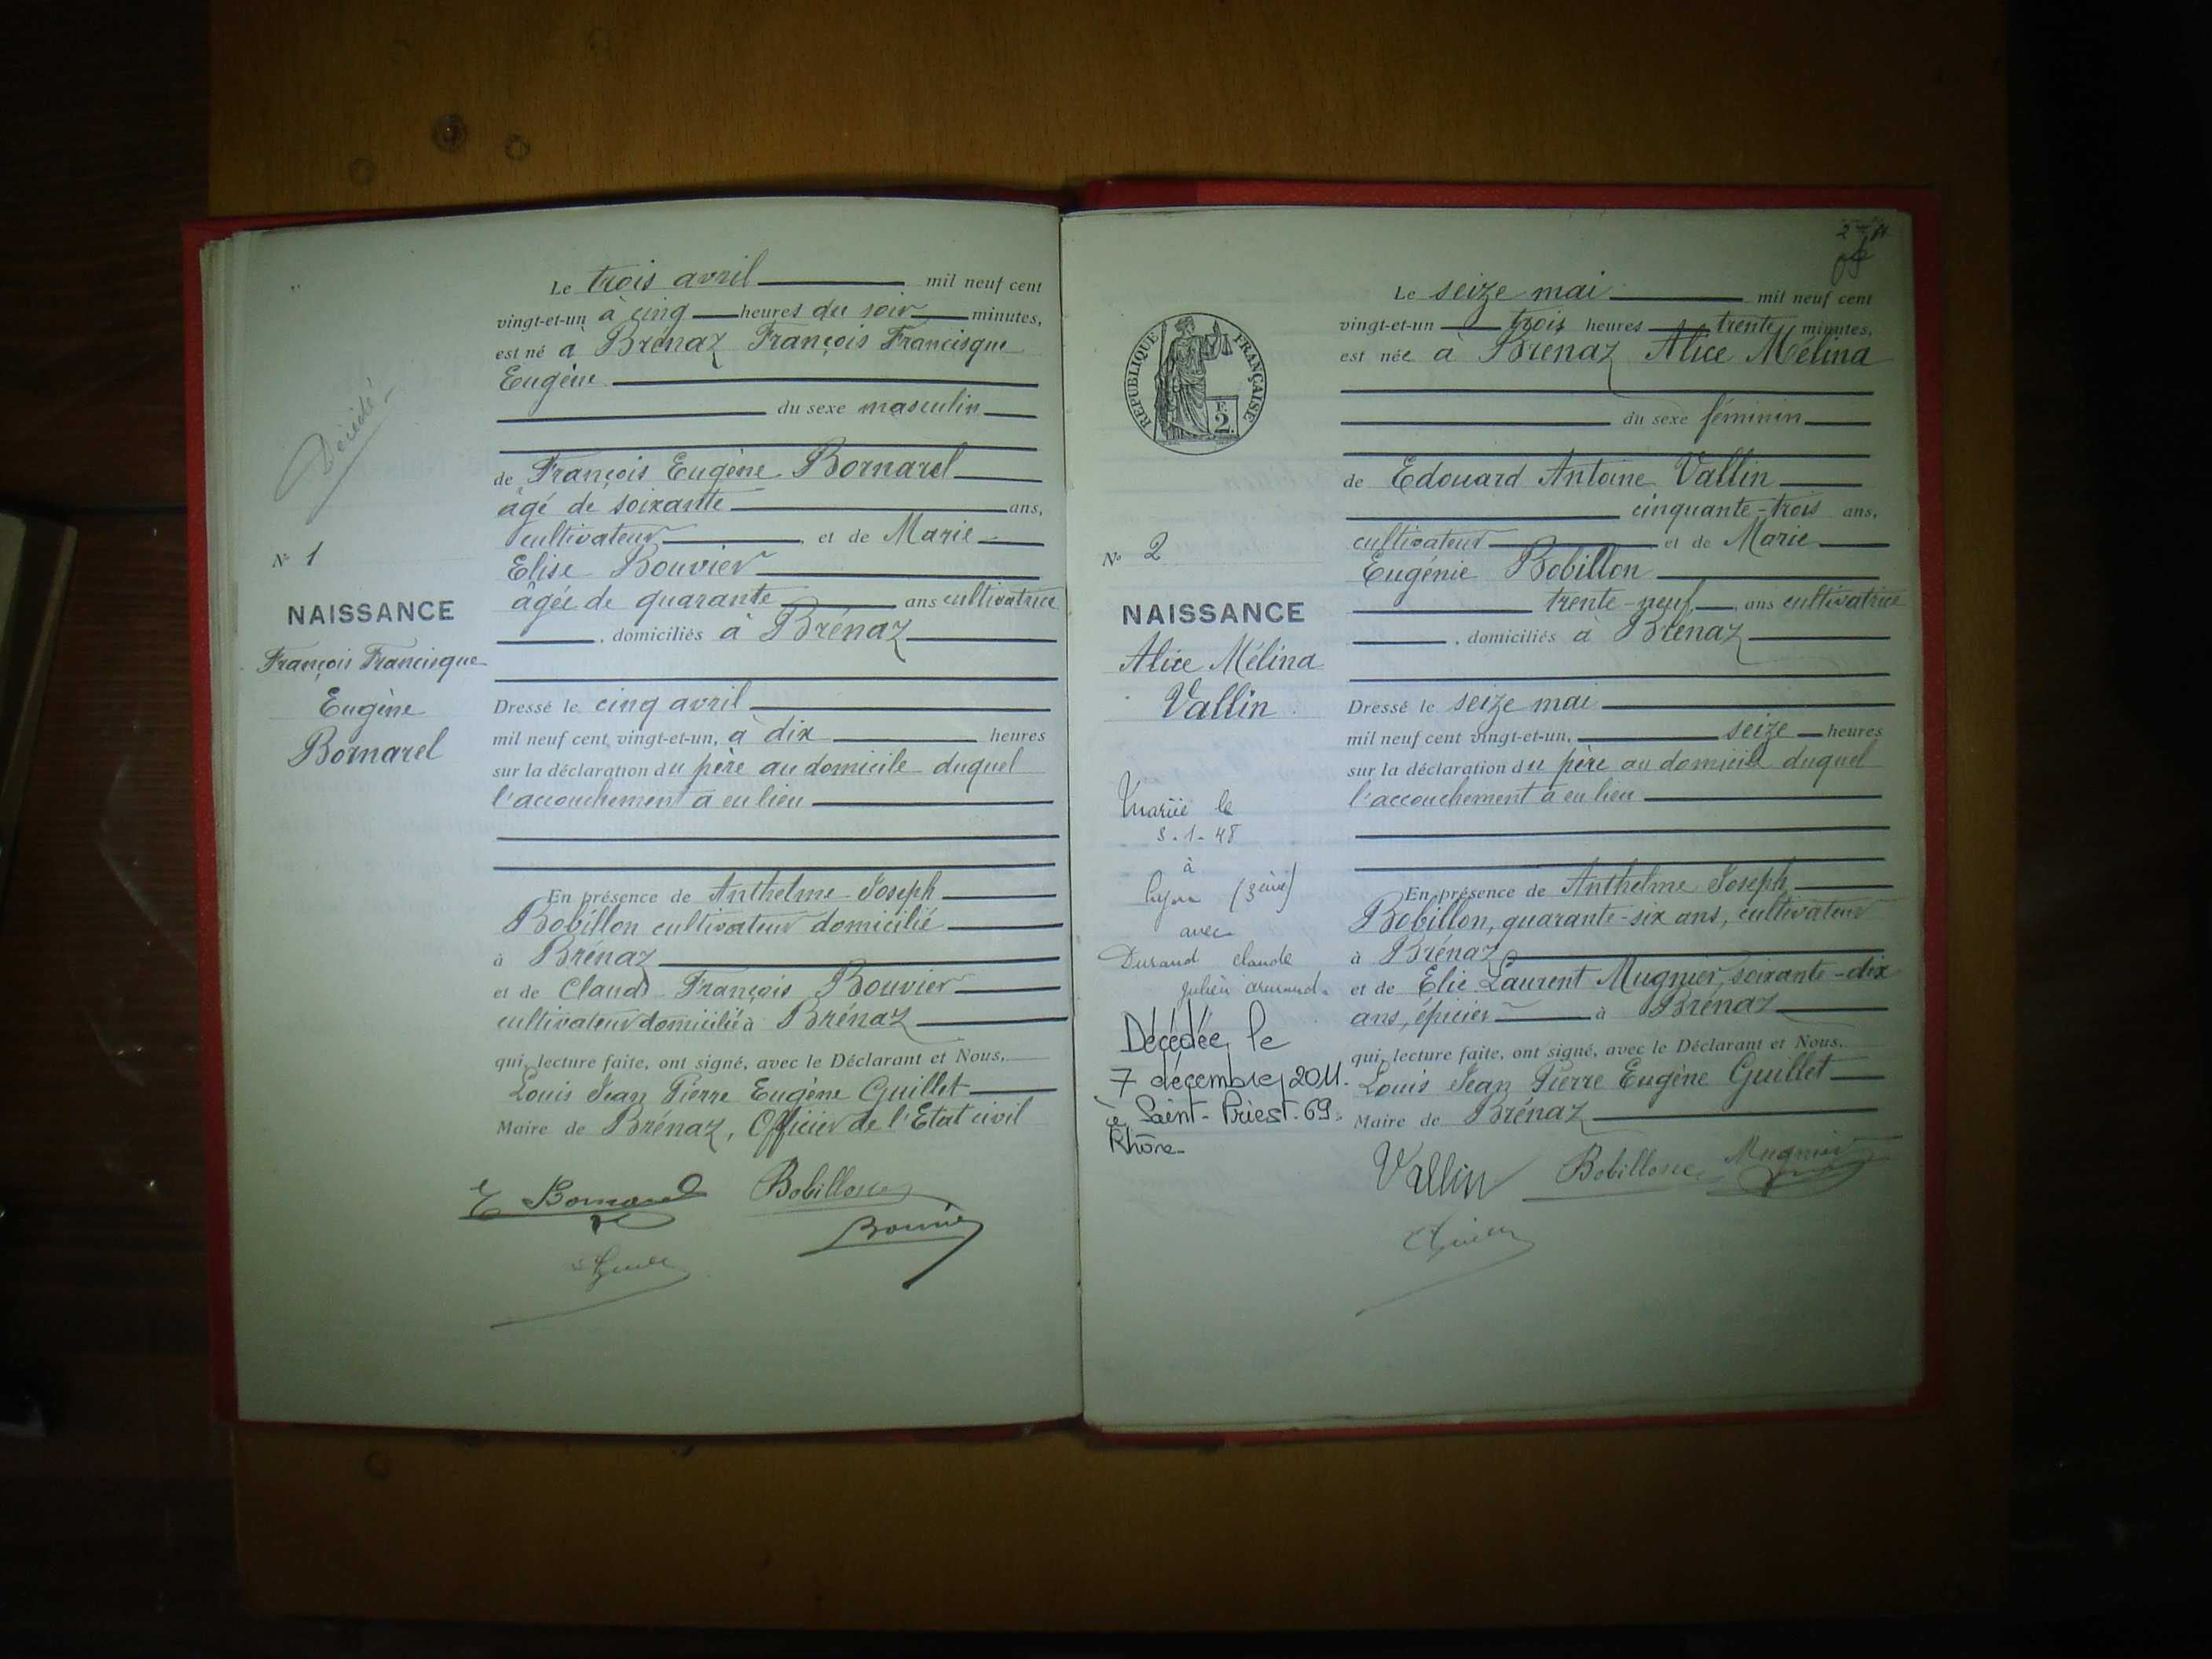 Décédé
N° 1
NAISSANCE
François Francisque
Eugène
Bornarel
Le trois avril mil neuf cent
vingt-et-un à cinq heures du soir minutes,
est né à Brénaz François Francisque
Eugène
du sexe masculin
de François Eugène Bornarel
âgé de soixante ans,
cultivateur, et de Marie
Elise Bouvier
âgée de quarante ans cultivatrice
, domiciliés à Brénaz
Dressé le cinq avril
mil neuf cent vingt-et-un, à dix heures
sur la déclaration du père au domicile duquel
l'accouchement a eu lieu
En présence de Anthelme Joseph
Bobillon cultivateur domicilié
à Brénaz
et de Claude François Bouvier
cultivateur domicilié à Brénaz
qui, lecture faite, ont signé, avec le Déclarant et Nous,
Louis Jean Pierre Eugène Guillet
Maire de Brénaz, Officier de l'Etat civil
E Bornarel Bobillon
Bouvier
REPUBLIQUE FRANÇAISE
F. 2.
N° 2
NAISSANCE
Alice Mélina
Vallin
Mariée le
à
Lyon (3ème)
avec
Durand Claude
Julien Armand.
Décédée le
7 décembre 2011.
à Saint-Priest. 69.
Rhône.
Le seize mai mil neuf cent
vingt-et-un trois heures trente minutes,
est née à Brénaz Alice Mélina
du sexe féminin
de Edouard Antoine Vallin
cinquante-trois ans,
cultivateur et de Marie
Eugénie Bobillon
trente-neuf ans cultivatrice
, domiciliés à Brénaz
Dressé le seize mai
mil neuf cent vingt-et-un, seize heures
sur la déclaration du père au domicile duquel
l'accouchement a eu lieu
En présence de Anthelme Joseph
Bobillon, quarante-six ans, cultivateur
à Brénaz
et de Elie Laurent Mugnier, soixante-dix
ans, épicier à Brénaz
qui, lecture faite, ont signé, avec le Déclarant et Nous,
Louis Jean Pierre Eugène Guillet
Maire de Brénaz
Vallin Bobillon Mugnier